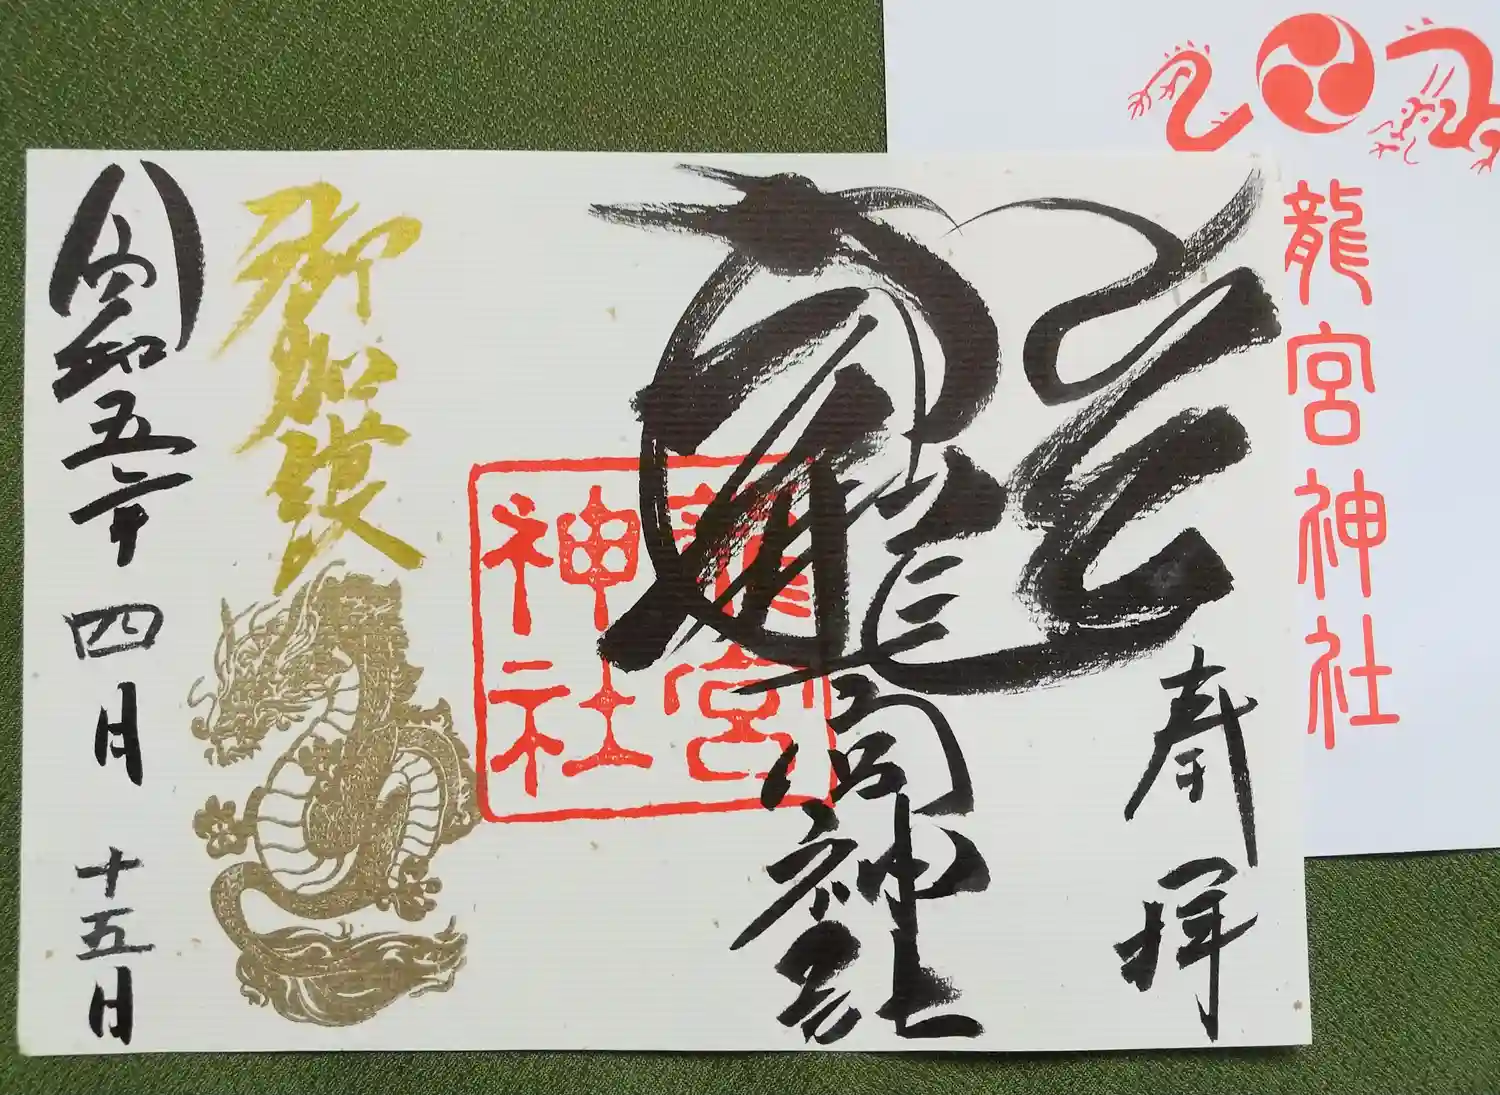 龍宮神社
奉拝
龍宮神社
龍宮
神社
御加護
令和五年 四月 十五日